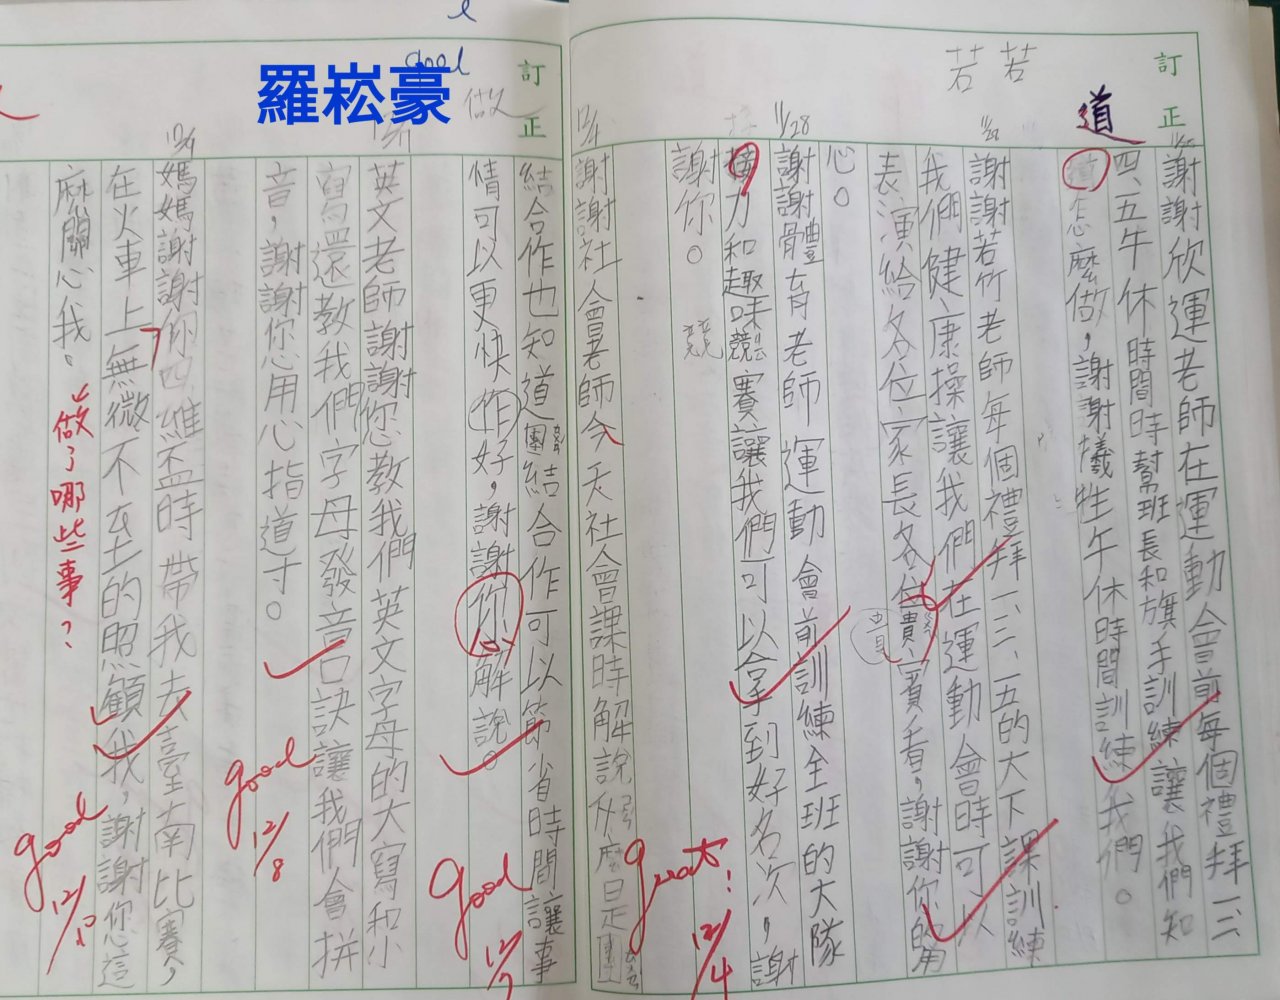 訂正
若若
道
11/25
謝謝欣運老師在運動會前每個禮拜一、三、
四、五午休時間時幫班長和旗手訓練讓我們知
道怎麼做，謝謝犧牲午休時間訓練我們。
謝謝若竹老師每個禮拜一、三、五的大下課訓練
我們健康操讓我們在運動會時可以
表演給各位家長各位貴賓看，謝謝你的用
心。
11/28
謝謝體育老師運動會前訓練全班的大隊
接力和趣味競賽讓我們可以拿到好名次，謝
謝你。
競
great!
12/4
12/4
謝謝社會老師今天社會課時解說什麼是團
結合作也知道團結合作可以節省時間讓事
情可以更快作好，謝謝你您解說。
good
12/7
訂正
做
good
羅崧豪
英文老師謝謝您教我們英文字母的大寫和小
寫還教我們字母發音口訣讓我們會拼
音，謝謝您用心指道寸。
good
12/8
12/9
媽媽謝謝你四維盃時帶我去臺南比賽，
在火車上無微不去土的照顧我，謝謝您這
麼關心我。
做了哪些事？
good
12/10